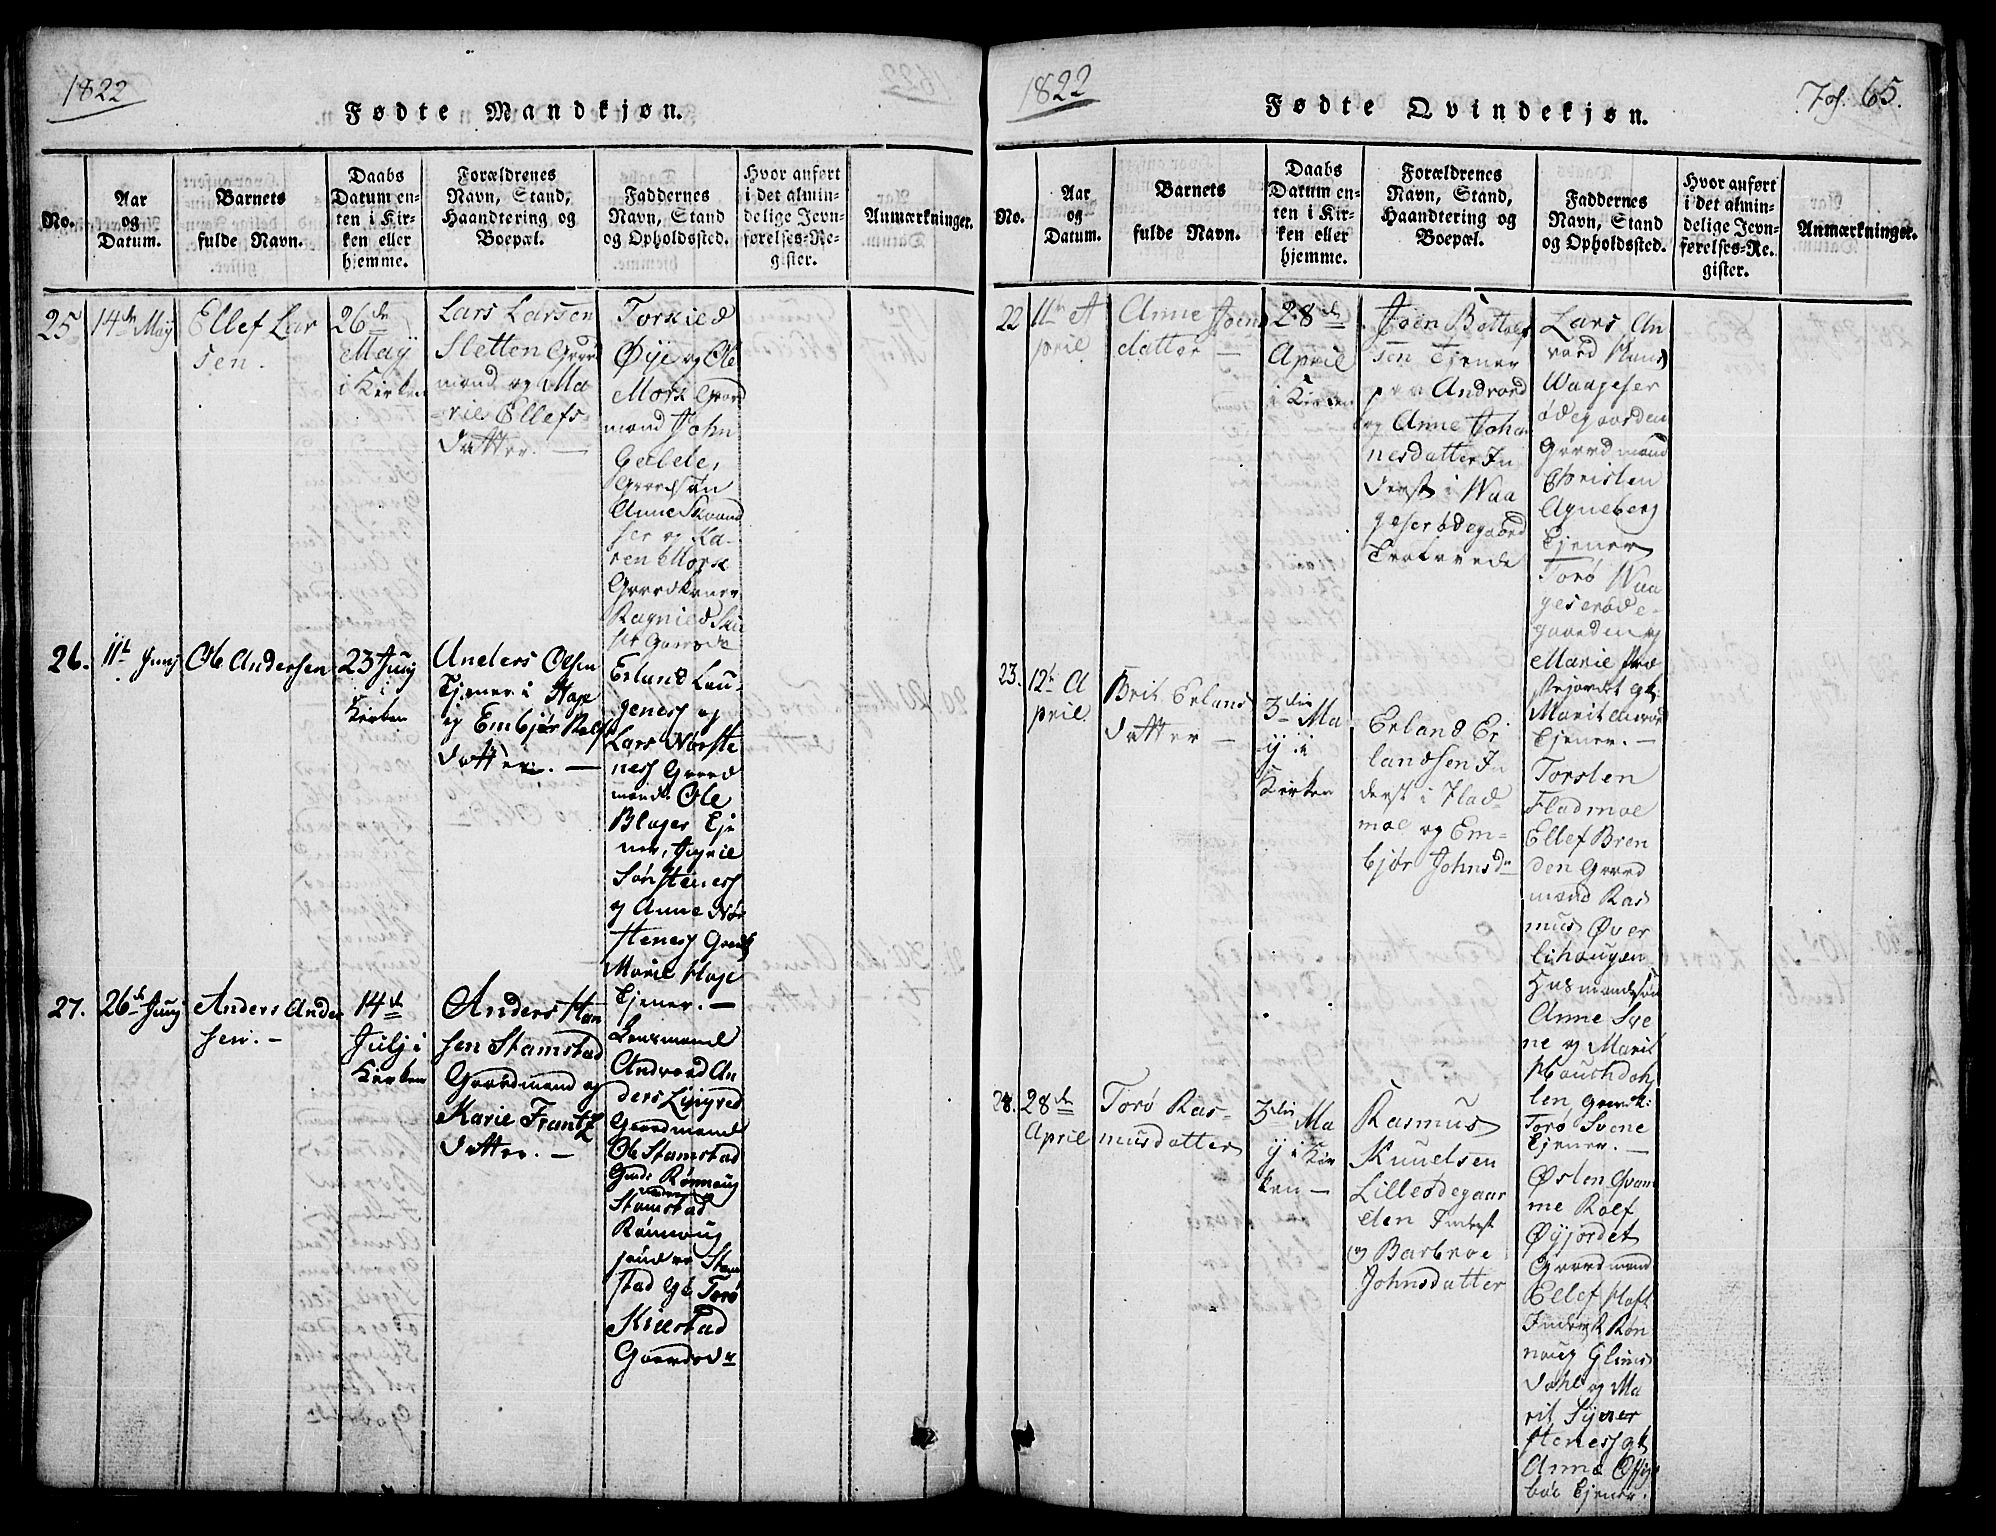 1822
Fødte Mandkjøn.
No.
Aar
og
Datum.
Barnets
fulde Navn.
Daabs
Datum en-
ten i Kir-
ken eller
hjemme.
Forældrenes
Navn, Stand,
Haandtering og
Boepæl.
Faddernes
Navn, Stand
og Opholdssted.
Hvor anført
i det almin-
delige Jevn-
førelses-Re-
gister.
Anmærkninger.
25
14de May
Ellef Lar
sen.
26de
May
i Kirken
Lars Larsen
Sletten Gaard
mand og Ma-
rie Ellefs-
datter.
Torkied
Øye og Ole
Mork Gaard
mand John
Gaardsøn
Anne
og Ka-
ren Mork
Gaardkoner
Ragnied
26.
11te Junj
Ole Andersen
23 Junj
i
Kirken
Anders Olsen
Tjener i Hage
og Embjør Rolfs
datter. —
Erland Lau-
geness og
Lars Nørste
ness Gaard
mænd Ole
Blager Tje
ner,
Sørsteness
og Anne Nør
steness
Marie Hage
Tjener. —
27.
26de Junj
Anders Ander
sen. —
14de
Julj i
Kirken
Anders Han
sen Stamstad
Gaardmand og
Marie Frantz
datter. —
Lensmand
Andvord An
ders
Gaardmand
Ole Stamstad
Rønnaug
Stamstad
Rønnaug
Stam
stad gk Torø
Kirstad
Gaardd
1822
Fødte Qvindekjøn.
65.
No.
Aar
og
Datum.
Barnets
fulde Navn.
Daabs
Datum en-
ten i Kir-
ken eller
hjemme.
Forældrenes
Navn, Stand,
Haandtering og
Boepæl.
Faddernes
Navn, Stand
og Opholdssted.
Hvor anført
i det almin-
delige Jevn-
førelses-Re-
gister.
Anmærkninger.
22
11te A
pril
Anne Joens
datter —
28de
April
i Kirken
Joen Bottolf
sen Tjener
paa Andvord
og Anne Joha
nesdatter In
derst i Waa
geserødegaard
Lars An
vord Hans
Waageser
ødegaarden
Gaardmænd
Christen
Agneberg
Tjener
Torø Waa
geserøde-
gaarden og
Marie
Marit Anvord
Tjener. —
23.
12te A
pril
Brit Erlans
datter —
3die Ma
y i
Kirken
Erland Er
landsen In
derst i Flad
moe og Em-
bjør Johnsdr
Torsten
Fladmoe
Ellef Bren
den Gaard
mænd Ras
mus Øver
lihaugen
Husmandssøn
Anne Sve
ne og Marit
dah
len
Torø Svene
Tjener. —
28de
April
Torø Ras-
musdatter
3die Ma
y i Kir
ken —
Rasmus
Knudsen
Lilleødegaar
den Inderst
og Barbroe
Johnsdatter
Østen Qvam
me Rolf
Øyjordet
Gaardmænd
Ellef
Inderst Røn
naug Glims
dahl og Ma
rit Syver
steness gk
Anne
boe Tjener.